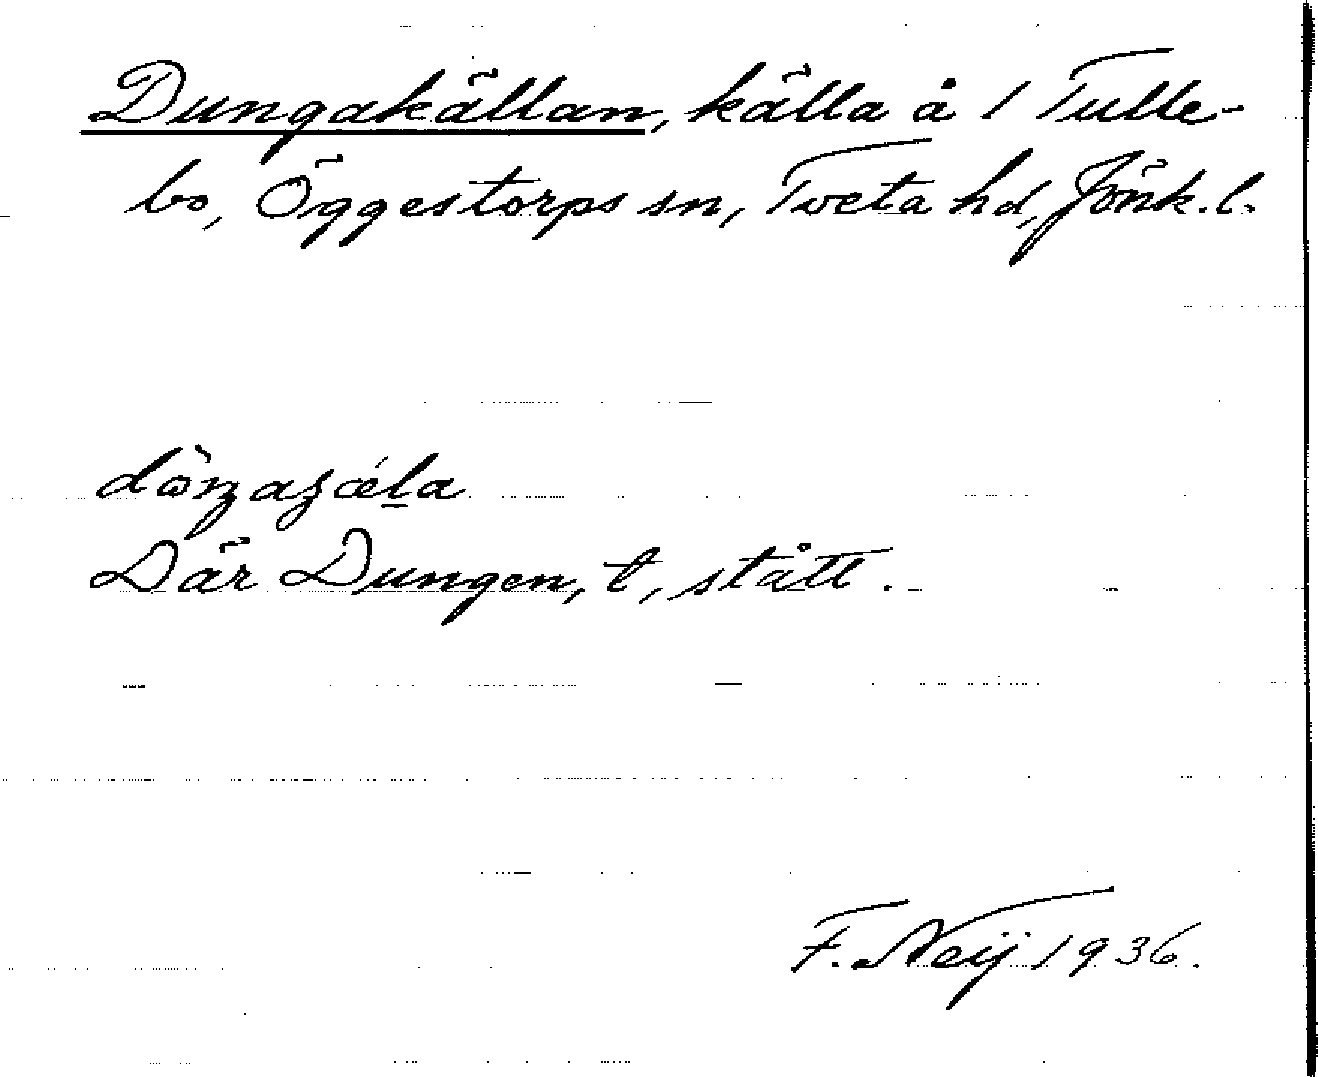 Dungakällan, källa å 1 Tulle-
bo, Öggestorps sn, Tveta hd, Jönk. l.
Där Dungen, t, stått.
F. Neij 1936.